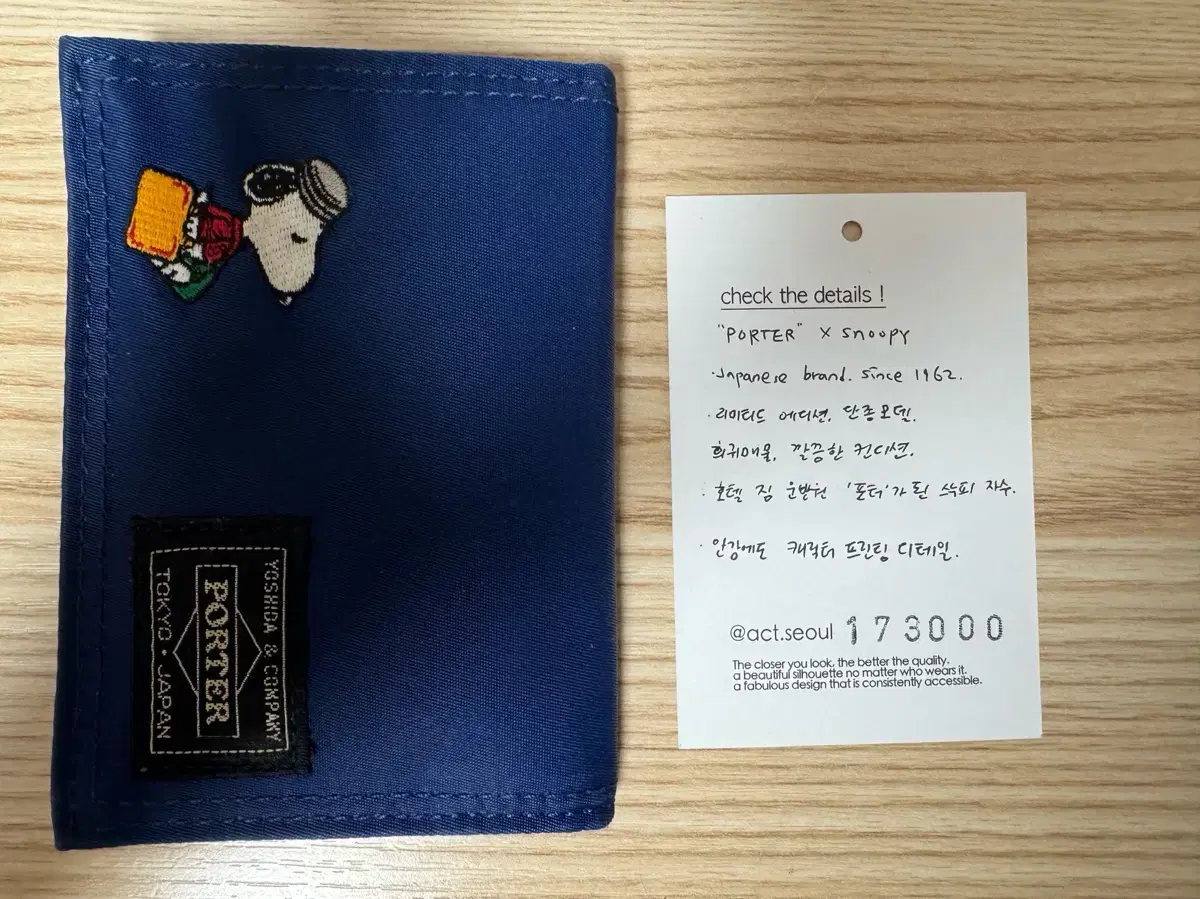 YOSHIDA & COMPANY
PORTER
TOKYO • JAPAN
check the details !
"PORTER" x snoopy
·Japanese brand. since 1962.
· 리미티드 에디션, 단종모델.
희귀매물, 깔끔한 컨디션.
· 호텔 짐 운반원 '포터'가 된 스누피 자수.
· 안감에도 캐릭터 프린팅 디테일.
@act.seoul 173000
The closer you look, the better the quality.
a beautiful silhouette no matter who wears it.
a fabulous design that is consistently accessible.